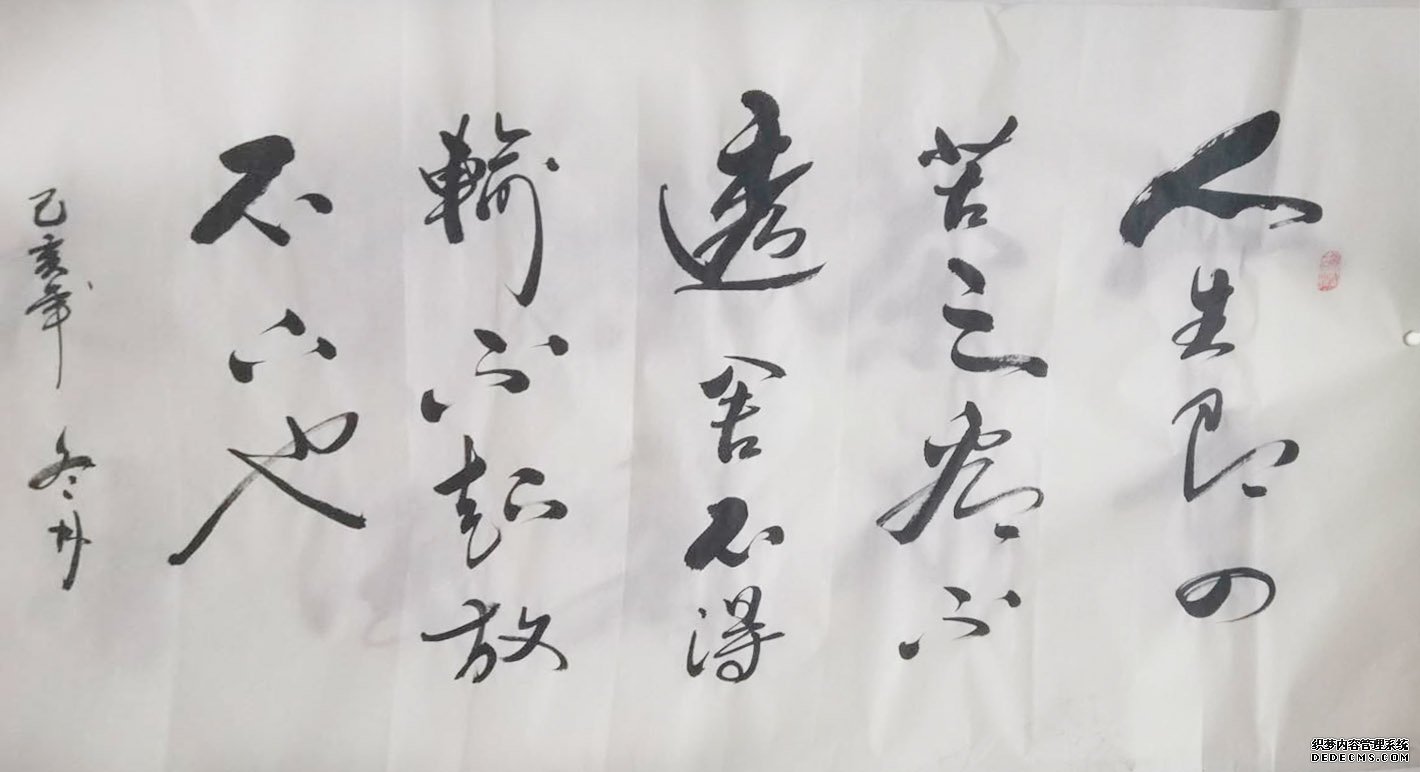 人生即四
苦之不
透舍不得
輸不起放
不下也
己亥年 冬
织梦内容管理系统
DEDECMS.COM